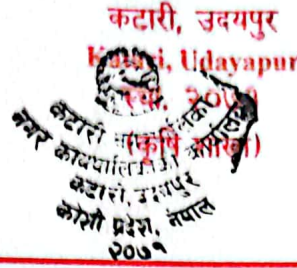 कटारी, उदयपुर
Katari, Udayapur
स्था. २०७१
(कृषि शाखा)
कटारी नगरपालिका
नगर कार्यपालिकाको कार्यालय
कटारी, उदयपुर
कोशी प्रदेश, नेपाल
२०७१